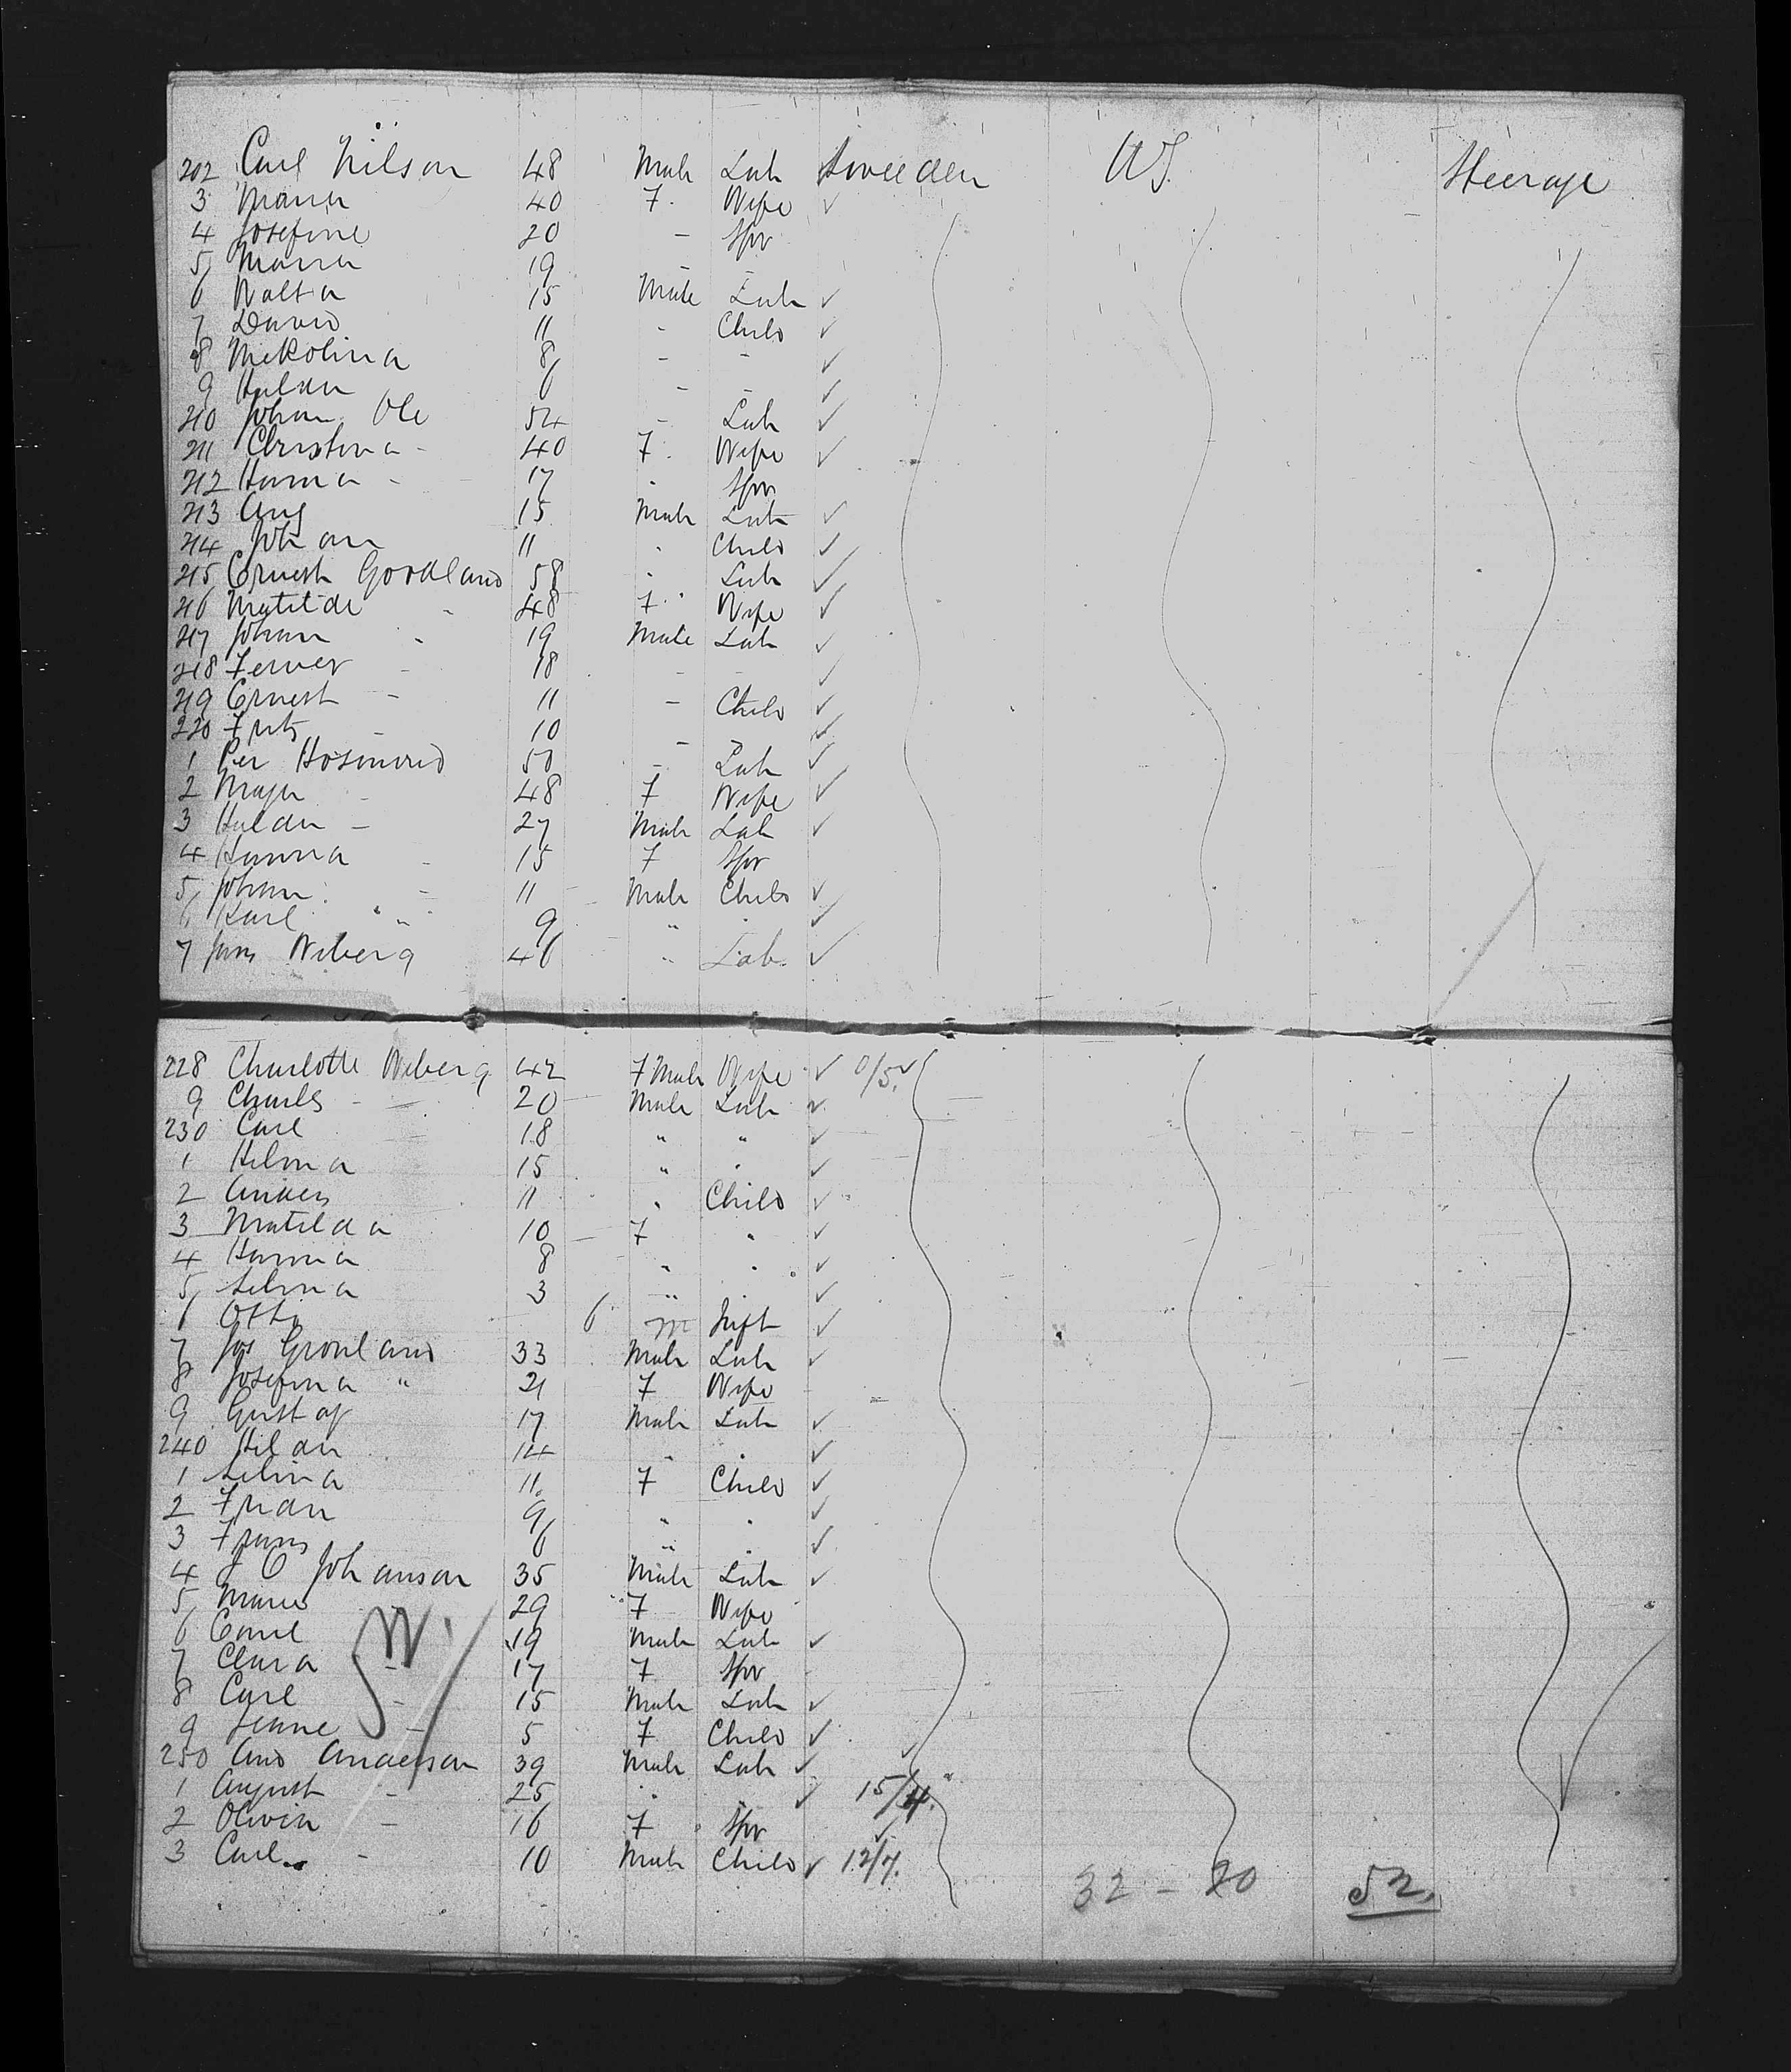 202 Carl Nilson 48 Male Lab Sweeden US. Steerage
3 Maria 40 F. Wife ✓
4 Josefine 20 - Spr
5 Maria 19 - -
6 Walter 15 Male Lab ✓
7 David 11 - Child ✓
8 Mekolina 8 - - ✓
9 Huldau 6 - - ✓
210 Johan Ole 54 - Lab ✓
211 Christina - 40 F. Wife ✓
212 Hanna - 17 - Spr
213 Aug 15 Male Lab ✓
214 Johan 11 . Child ✓
215 Ernest Goodland 58 . Lab ✓
216 Matilde - 48 F. Wife ✓
217 Johan - 19 Male Lab ✓
218 - 18 - - ✓
219 Ernest - 11 - Child ✓
220 Fritz - 10 - - ✓
1 Per 50 - Lab ✓
2 Maja - 48 F Wife ✓
3 Huldau - 27 Male Lab ✓
4 Hanna - 15 F Spr
5 Johan - 11 - Male Child ✓
6 Karl " " 9 " . ✓
7 Jans Weberg 46 " Lab. ✓
228 Charlotte Weberg 42 F Male Wife ✓ 0/5. ✓
9 Charles - 20 Male Lab ✓
230 Carl 18 " " ✓
1 Hilma 15 " . ✓
2 Anders 11 . Child ✓
3 Matilda 10 - F . ✓
4 Hanna 8 " . ✓
5 Selma 3 " . ✓
6 Otto 6 M Inft ✓
7 Jos Gronland 33 Male Lab ✓
8 Josefina " 21 F Wife
9 Gustaf 17 Male Lab ✓
240 Hildau 14 . . ✓
1 Selma 11. F Child ✓
2 9 " . ✓
3 Frans 6 " . ✓
4 J C Johanson 35 Male Lab ✓
5 Marie 29 F Wife
6 Emil 19 Male Lab ✓
7 Clara - 17 F Spr
8 Carl - 15 Male Lab ✓
9 Jenne - 5 F Child ✓
250 And Anderson 39 Male Lab ✓ ✓
1 August - 25 . . ✓ 15/4.
2 Olivia - 16 F Spr ✓
3 Carl - 10 Male Child ✓ 12/7.
32 - 20 52.